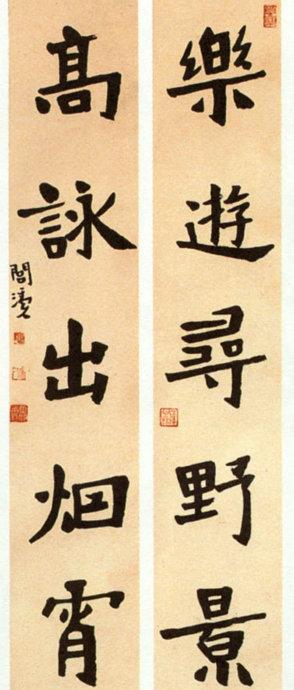 樂遊尋野景
高詠出烟霄